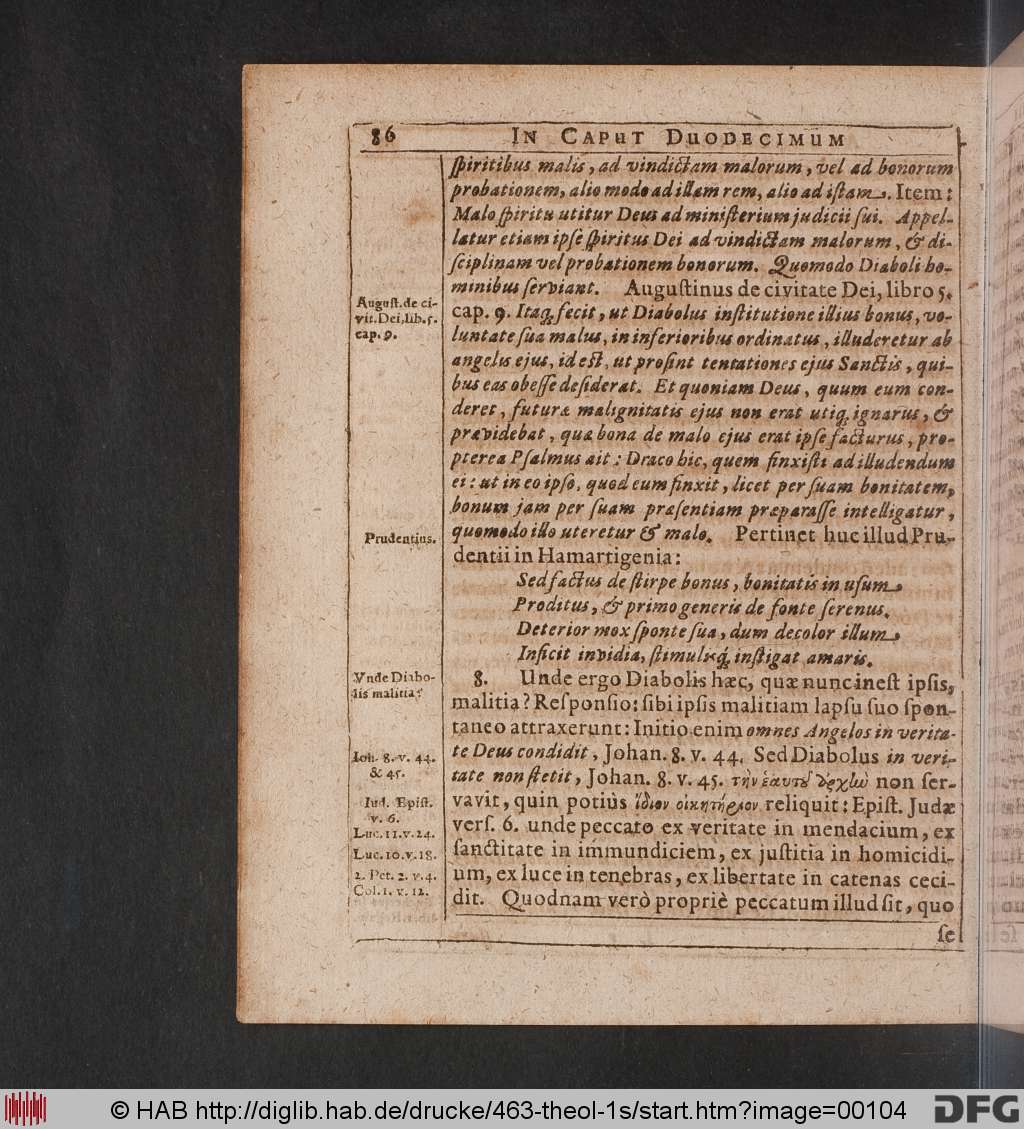 86 IN CAPUT DUODECIMUM
ſpiritibus malis, ad vindictam malorum, vel ad bonorum
probationem, alio modo ad illam rem, alio ad iſtam. Item:
Malo ſpiritu utitur Deus ad miniſterium judicii ſui. Appel-
latur etiam ipſe ſpiritus Dei ad vindictam malorum, & di-
ſciplinam vel probationem bonorum. Quomodo Diaboli ho-
minibus ſerviant. Auguſtinus de civitate Dei, libro 5.
cap. 9. Itaq; fecit, ut Diabolus inſtitutione illius bonus, vo-
luntate ſua malus, in inferioribus ordinatus, illuderetur ab
angelis ejus, id eſt, ut proſint tentationes ejus Sanctis, qui-
bus eas obeſſe deſiderat. Et quoniam Deus, quum eum con-
deret, futuræ malignitatis ejus non erat utiq; ignarus, &
prævidebat, quæ bona de malo ejus erat ipſe facturus, pro-
pterea Pſalmus ait: Draco hic, quem finxiſti ad illudendum
ei: ut in eo ipſo, quod eum finxit, licet per ſuam bonitatem,
bonum jam per ſuam præſentiam præparaſſe intelligatur,
quomodo illo uteretur & malo. Pertinet huc illud Pru-
dentii in Hamartigenia:
Sed factus de ſtirpe bonus, bonitatis in uſum
Proditus, & primo generis de fonte ſerenus.
Deterior mox ſponte ſua, dum decolor illum
Inficit invidia, ſtimulisq; inſtigat amaris.
8. Unde ergo Diabolis hæc, quæ nunc ineſt ipſis,
malitia? Reſponſio: ſibi ipſis malitiam lapſu ſuo ſpon-
taneo attraxerunt: Initio enim omnes Angelos in verita-
te Deus condidit, Johan. 8. v. 44. Sed Diabolus in veri-
tate non ſtetit, Johan. 8. v. 45. τὴν ἑαυτοῦ ἀρχὴν non ſer-
vavit, quin potiùs ἴδιον οἰκητήριον reliquit: Epiſt. Judæ
verſ. 6. unde peccato ex veritate in mendacium, ex
ſanctitate in immundiciem, ex juſtitia in homicidi-
um, ex luce in tenebras, ex libertate in catenas ceci-
dit. Quodnam verò propriè peccatum illud ſit, quo
ſe
Auguſt. de ci-
vit. Dei, lib. 5.
cap. 9.
Prudentius.
Vnde Diabo-
lis malitia?
Ioh. 8. v. 44.
& 45.
Iud. Epiſt.
v. 6.
Luc. 11. v. 24.
Luc. 10. v. 18.
2. Pet. 2. v. 4.
Col. 1. v. 12.
© HAB http://diglib.hab.de/drucke/463-theol-1s/start.htm?image=00104
DFG